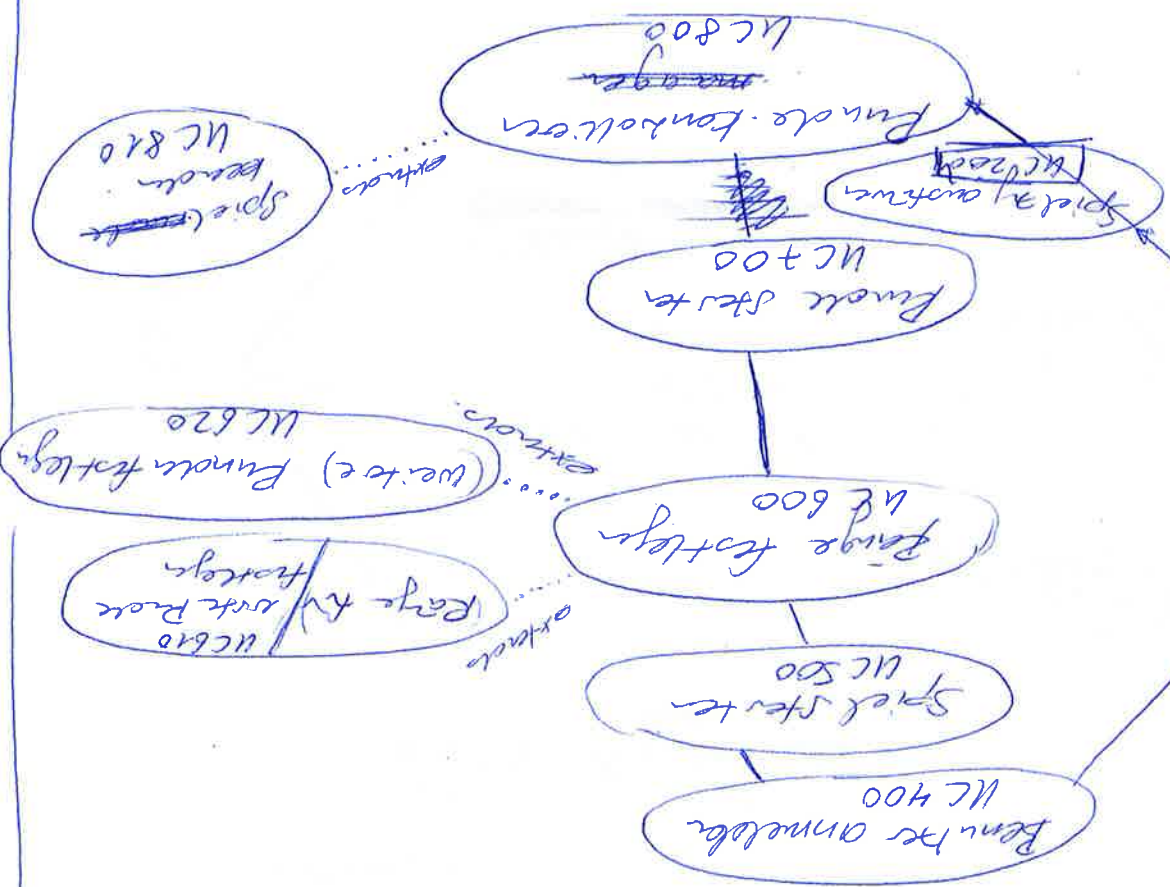 Benutzer anmelden
UC 400
Spiel starten
UC 500
Ränge festlegen
UC 600
extends
UC610
Ränge für erste Runde
festlegen
extends
(weitere) Runden festlegen
UC 620
Runde starten
UC 700
Spielzug ausführen
UC 200
Runde kontrollieren
manager
UC 800
extends
Spiel
beenden
UC 810